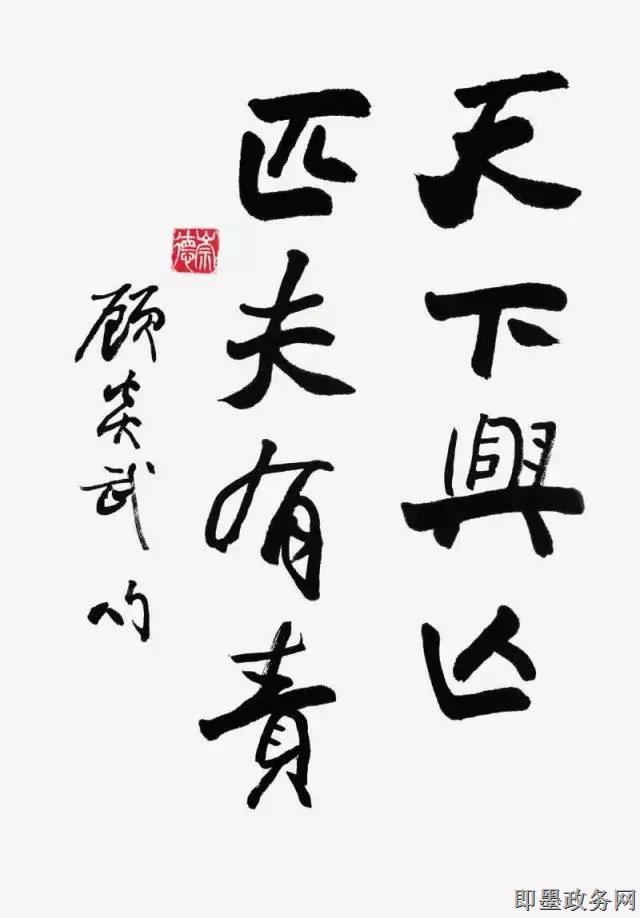 天下興亡
匹夫有責
顾炎武句
崇德
即墨政务网